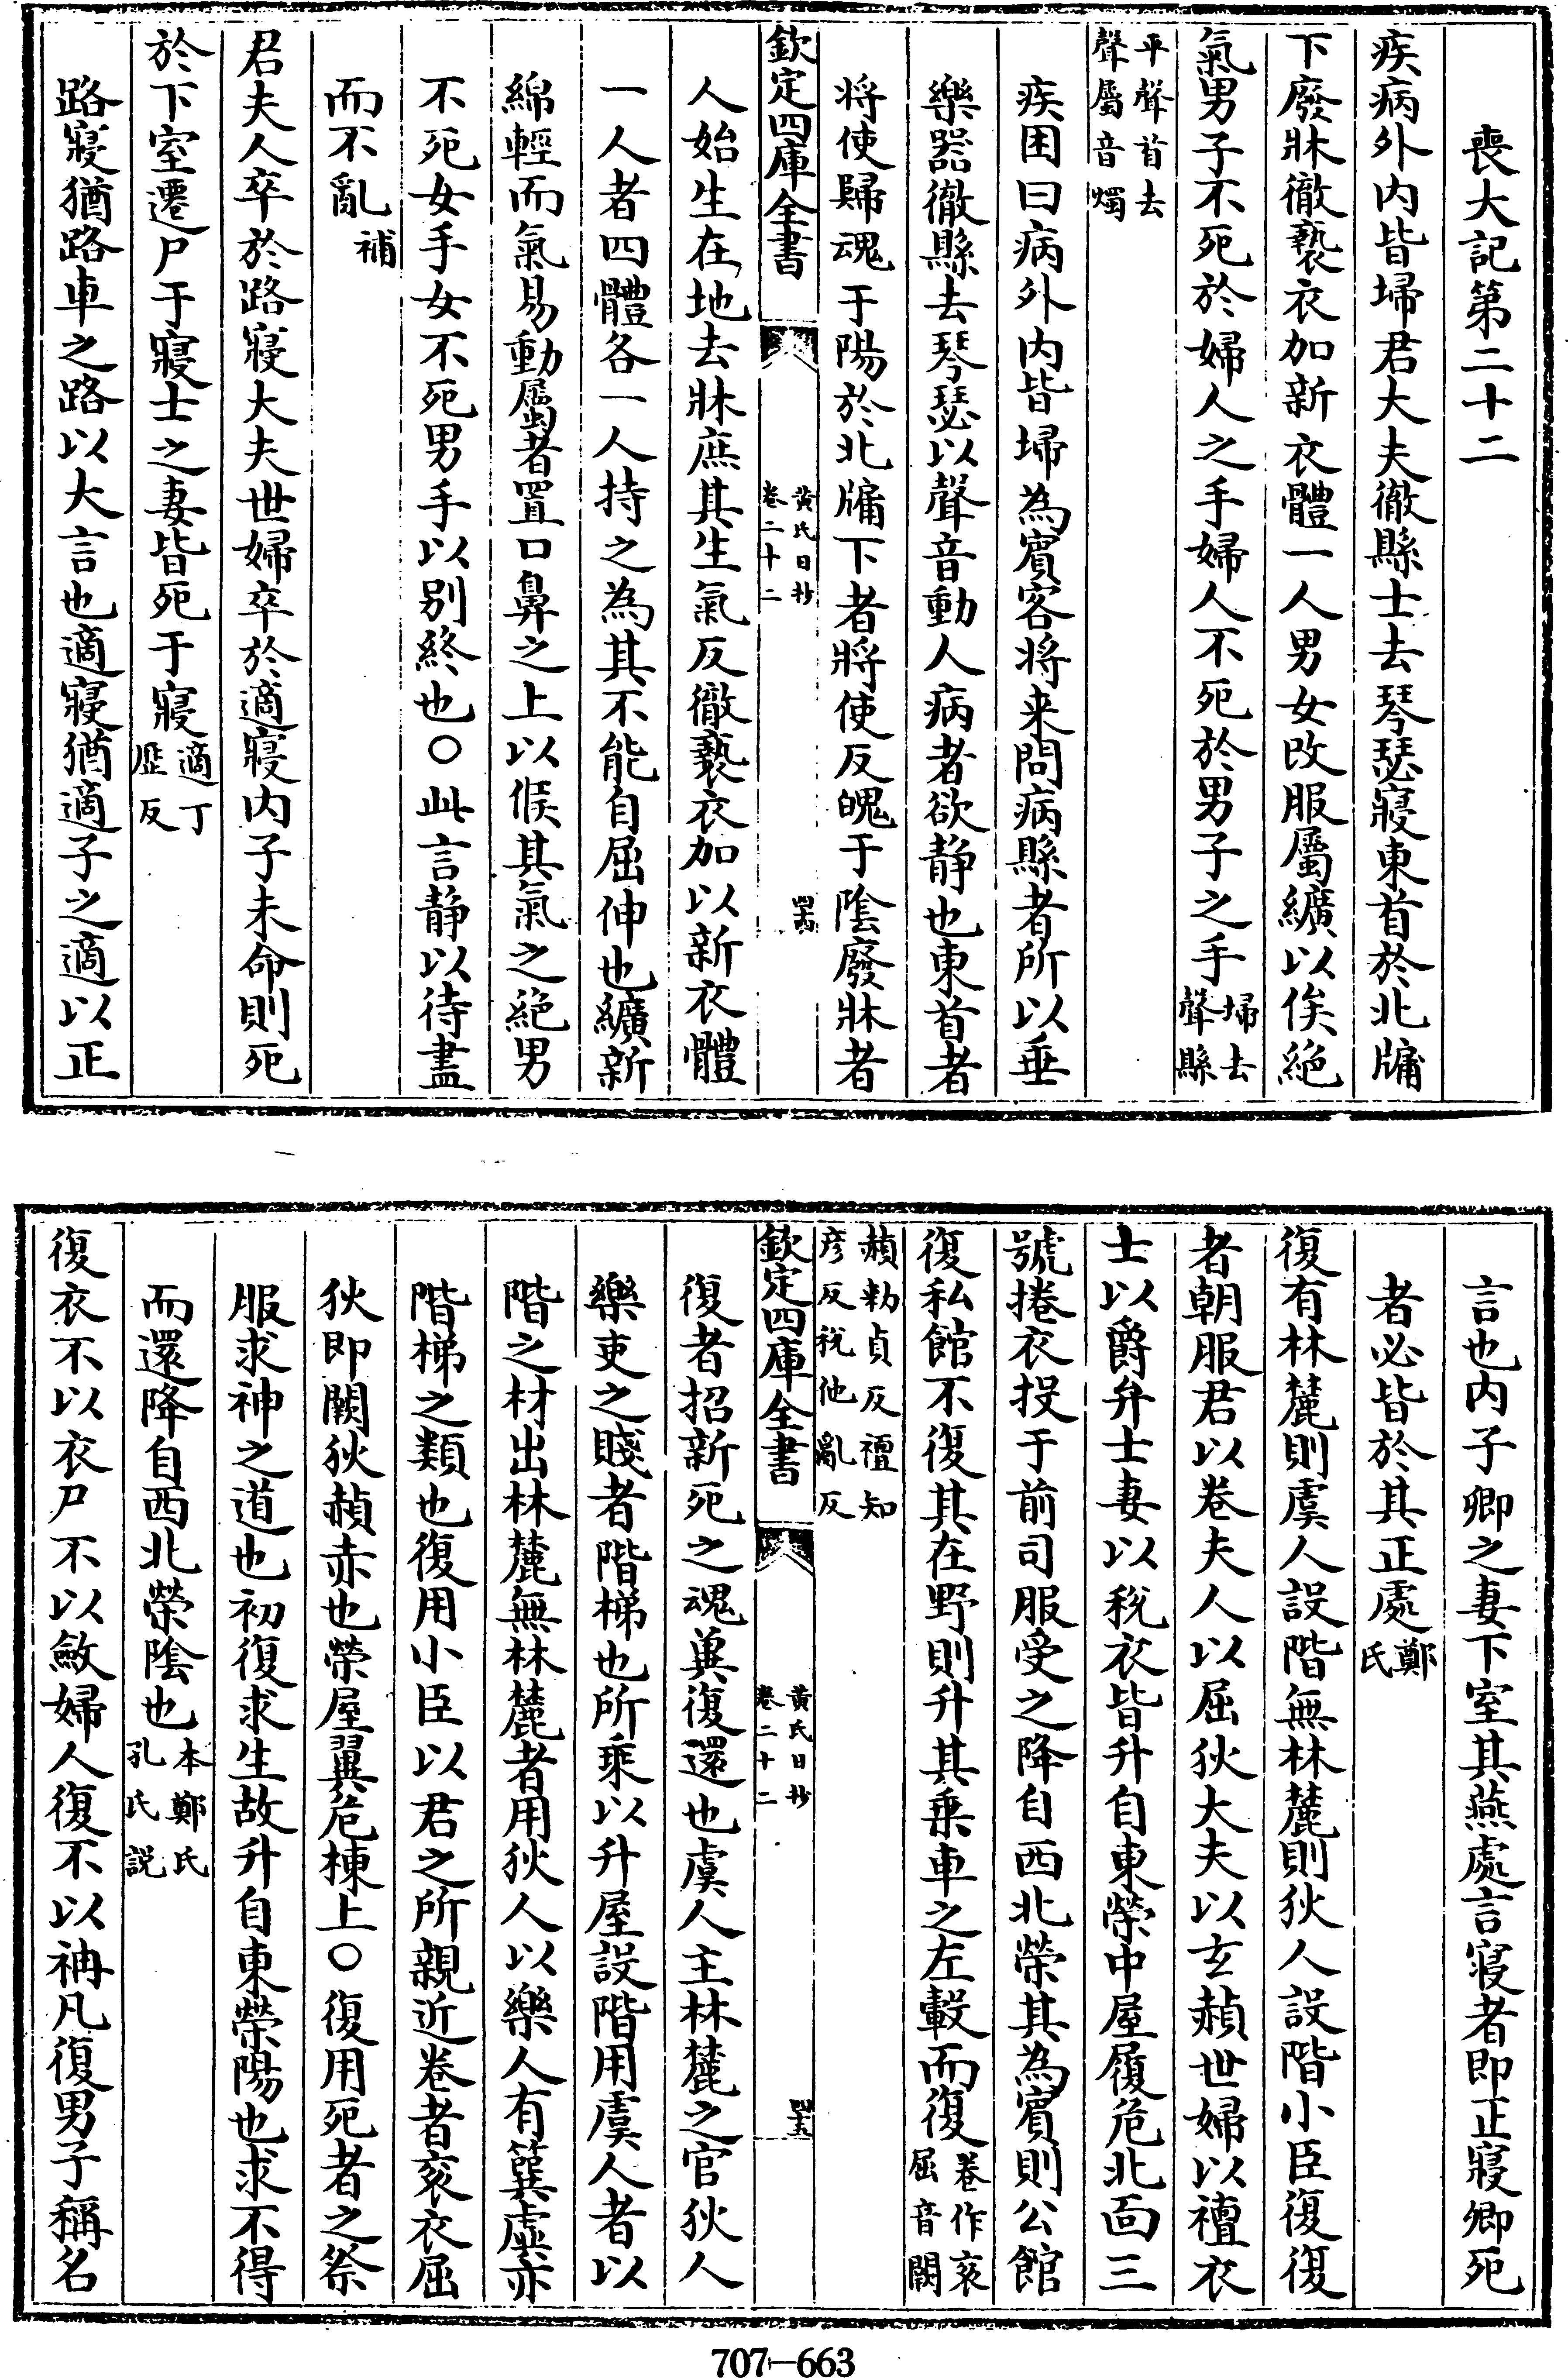 喪大記第二十二
疾病外内皆埽君大夫徹縣士去琴瑟寢東首於北牖
下廢牀徹褻衣加新衣體一人男女改服屬纊以俟絶
氣男子不死於婦人之手婦人不死於男子之手埽去聲縣
平聲首去聲屬音燭
疾困曰病外内皆埽為賓客将来問病縣者所以垂
樂器徹縣去琴瑟以聲音動人病者欲静也東首者
将使歸魂于陽於北牖下者將使反魄于陰廢牀者
欽定四庫全書 黄氏日抄卷二十二 四十四
人始生在地去牀庶其生氣反徹褻衣加以新衣體
一人者四體各一人持之為其不能自屈伸也纊新
綿輕而氣易動屬者置口鼻之上以候其氣之絶男
不死女手女不死男手以别終也○此言静以待盡
而不亂補
君夫人卒於路寢大夫世婦卒於適寢内子未命則死
於下室遷尸于寢士之妻皆死于寢適丁歴反
路寢猶路車之路以大言也適寢猶適子之適以正
言也内子卿之妻下室其燕處言寢者即正寢卿死
者必皆於其正處鄭氏
復有林麓則虞人設階無林麓則狄人設階小臣復復
者朝服君以卷夫人以屈狄大夫以玄赬世婦以襢衣
士以爵弁士妻以税衣皆升自東榮中屋履危北面三
號捲衣投于前司服受之降自西北榮其為賓則公館
復私館不復其在野則升其乗車之左轂而復卷作衮屈音闕
赬勑貞反襢知彦反税他亂反
欽定四庫全書 黄氏日抄卷二十二 四十五
復者招新死之魂兾復還也虞人主林麓之官狄人
樂吏之賤者階梯也所乘以升屋設階用虞人者以
階之材出林麓無林麓者用狄人以樂人有簨虡亦
階梯之類也復用小臣以君之所親近卷者衮衣屈
狄即闕狄赬赤也榮屋翼危棟上○復用死者之祭
服求神之道也初復求生故升自東榮陽也求不得
而還降自西北榮陰也本鄭氏孔氏説
復衣不以衣尸不以斂婦人復不以袡凡復男子稱名
707-663